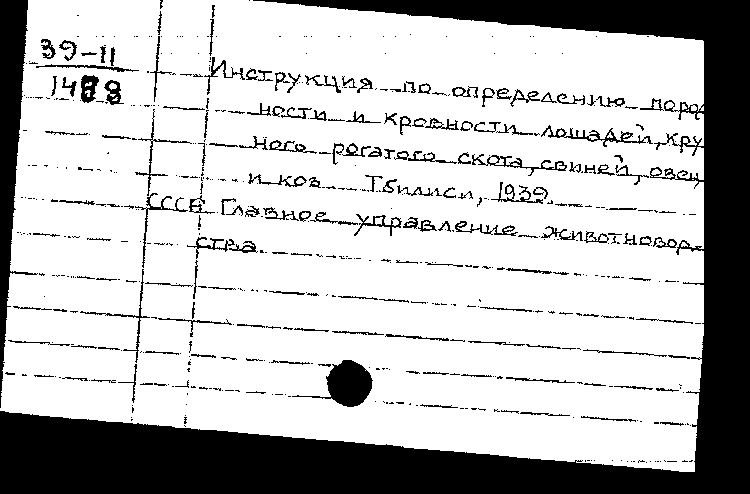 39-11
Инструкция по определению пород
ности и кровности лошадей, кру
ного рогатого скота, свиней, овец
и коз Тбилиси, 1939.
СССР. Главное управление животновод-
ства.